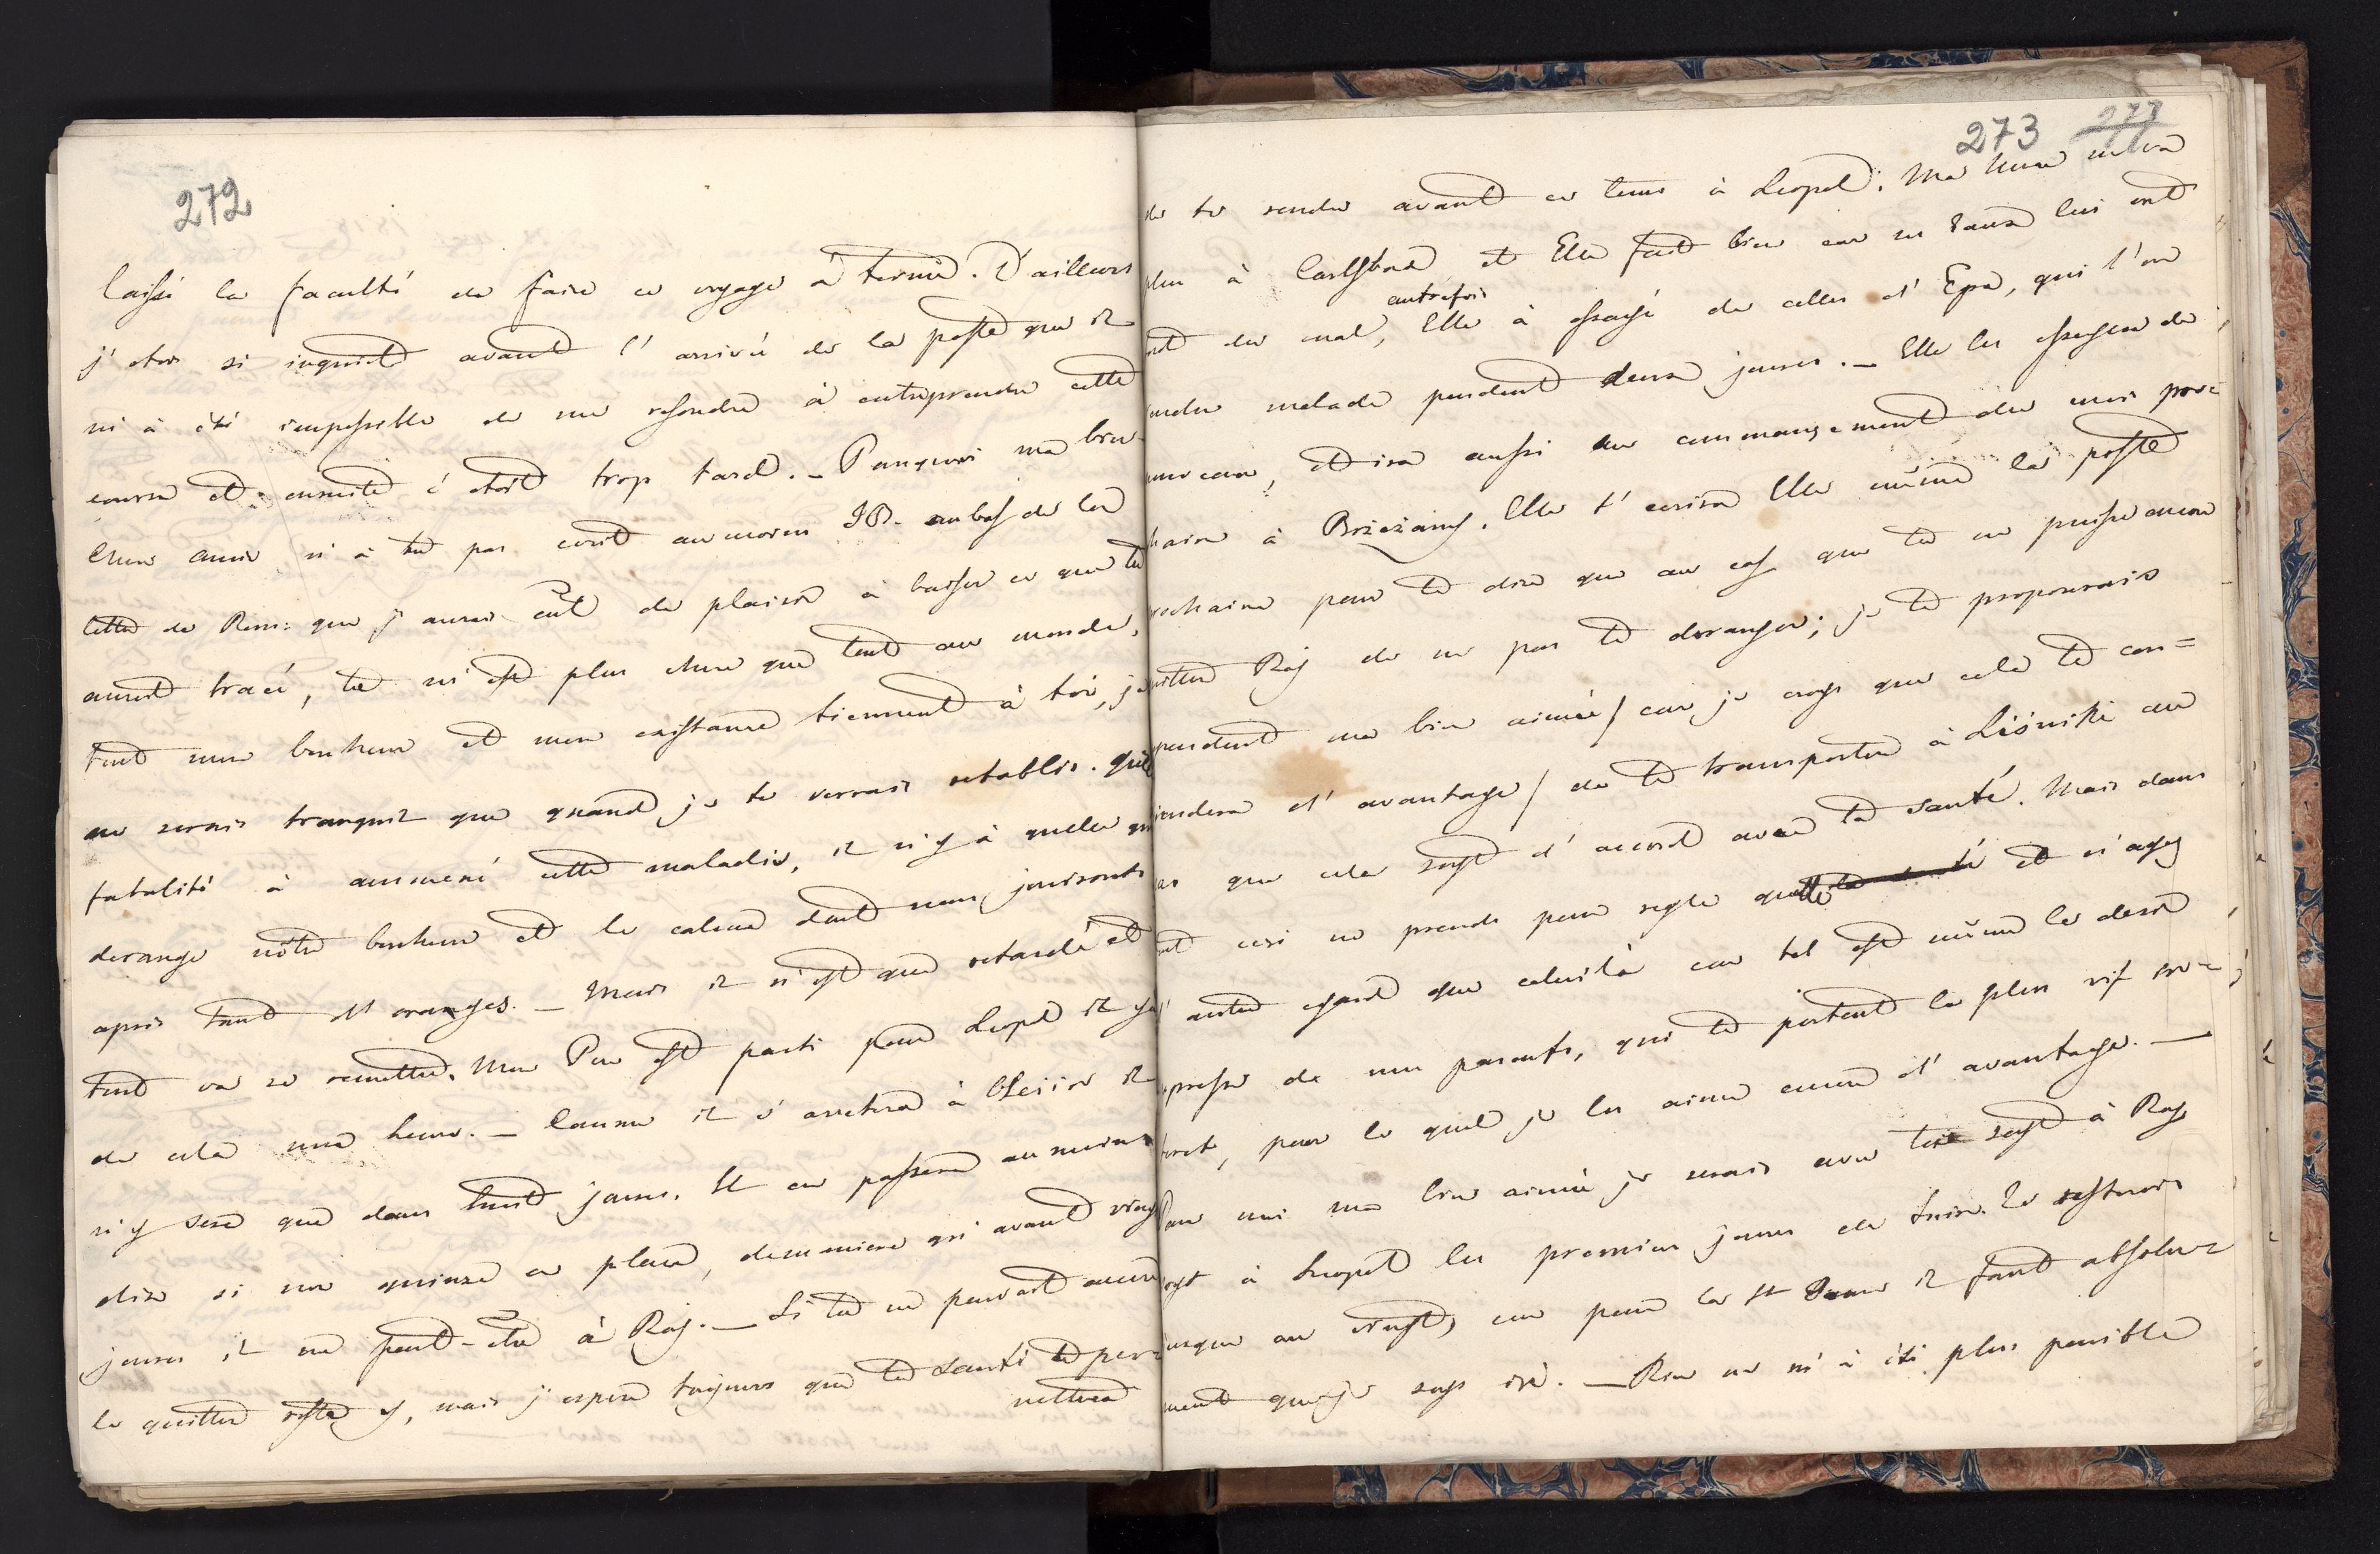 272
laissé la faculté de faire ce voyage à terme. D'ailleurs
j'etois si inquiet avant l'arrivé de la poste que il
m'à été impossible de me resoudre à entreprendre cette
course et ensuite c'etoit trop tard. – Pourquoi ma bien
Chere amie n'à tu pas ecrit au moins au bas de la
lettre de que j'aurai eut de plaisir à baiser ce que tu
aurait tracé, tu m'est plus chere que tout au monde,
tout mon bonheur et mon existance tiennent à toi, je
ne serais tranquil que quand je te verrais retablis. quelle
fatalité à ammené cette maladie, il n'y à qu'elle qui
derange nôtre bonheur et le calme dont nous jouirons
apres tant d'oranges. – Mais il n'est que retardé et
tout va se remettre. Mon Pere est parti pour Leopol il y a
de cela une heure. – Comme il s'arretera à il
n'y sera que dans huit jours. Il en passera au moins
dix si non quinze en place, de maniere qui avant vingt
jours il ne peut-être à Raj. – Si tu ne pouvait encore
le quitter reste y, mais j'espere toujours que ta santé te per=
mettera
273 277
de te rendre avant ce tems à Leopol. Ma Mere ne va
plus à Carlsbad et Elle fait bien car ses eaux lui ont
autrefois
fait du mal, Elle à essayé de celles d'Egra, qui l'on
rendue malade pendant deux jours. – Elle les essayera de
nouveau, et ira aussi au commangement du mois pro=
chain à Brzeżany. Elle t'ecrira Elle même la poste
prochaine pour te dire que au cas que tu ne puisse encore
quitter Raj de ne pas te deranger; je te proposerais
pendant ma bien aimée / car je crois que cela te con=
viendera d'avantage / de te transporter à au
cas que cela soyt d'accord avec ta santé. Mais dans
tout ceci ne prends pour regle que et n'ayez
d'autre egard que celuilà car tel est même le desir
expresse de mes parents, qui te portent le plus vif in=
teret, pour le quel je les aime encore d'avantage. –
Pour moi ma bien aimée je serais avec toi soyt à Raj
soyt à Leopol les premiers jours de Juin. Je resterais
jusque au vingt, car pour la St Jean il faut absolu=
ment que je soys ici. – Rien ne m'à été plus penible